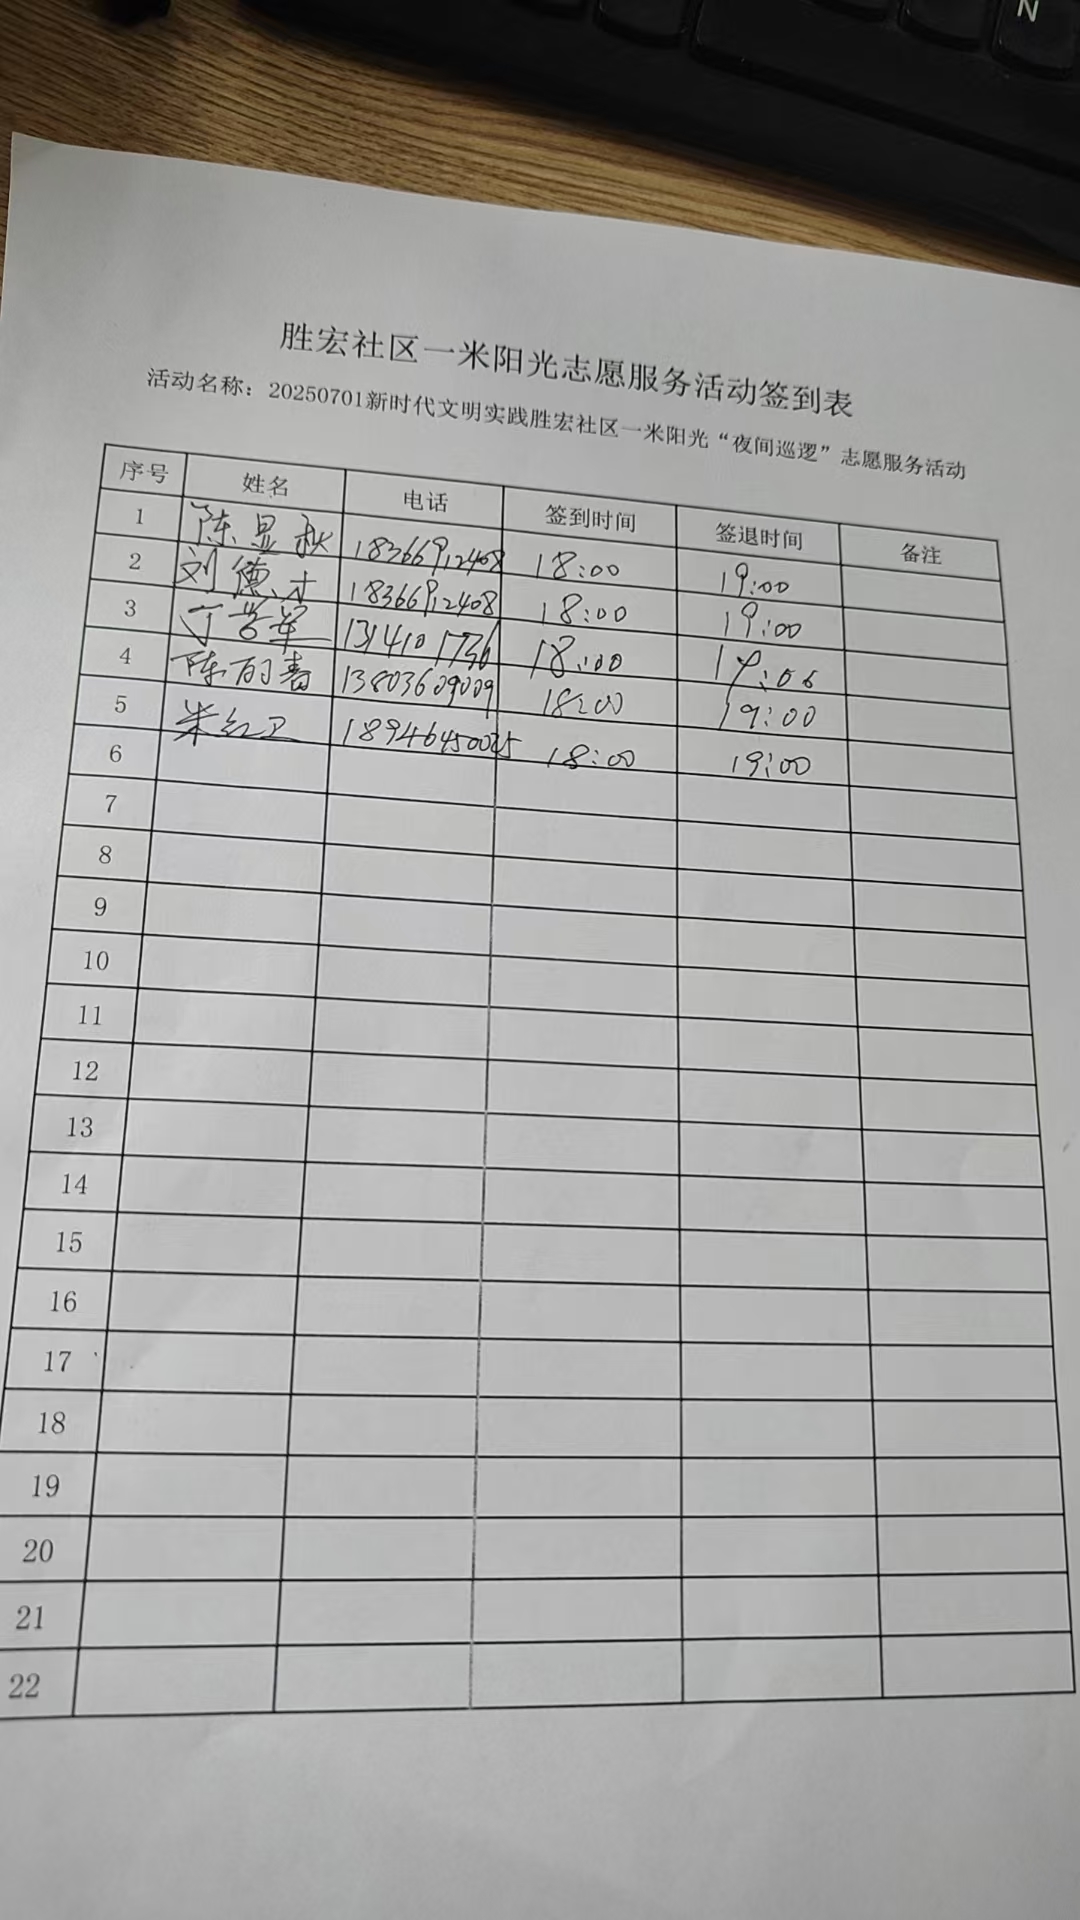 N
胜宏社区一米阳光志愿服务活动签到表
活动名称：20250701新时代文明实践胜宏社区一米阳光“夜间巡逻”志愿服务活动
序号 姓名 电话 签到时间 签退时间 备注
1 陈显秋 18366912408 18:00 19:00
2 刘德才 18366912408 18:00 19:00
3 18:00
4 陈丽春 13803609009 18:00 19:00
5 朱红卫 18946450025 18:00 19:00
6
7
8
9
10
11
12
13
14
15
16
17
18
19
20
21
22